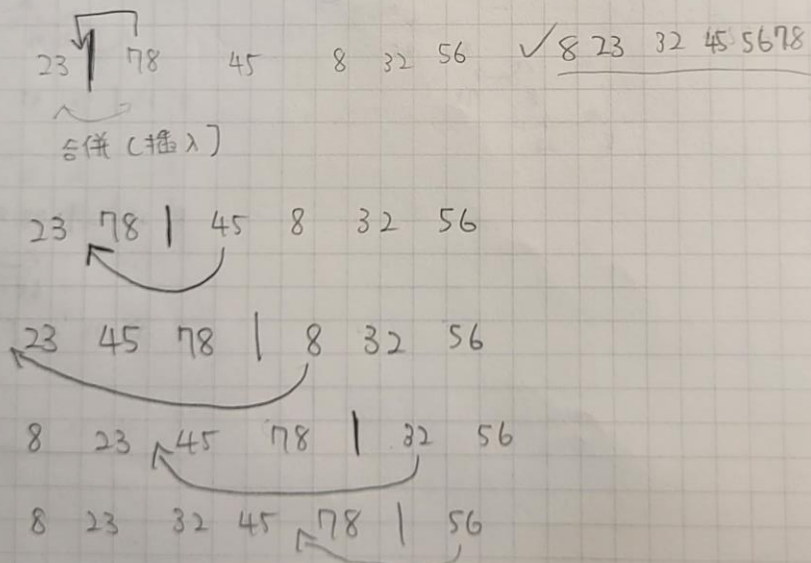 23 | 78 45 8 32 56 ✓ 8 23 32 45 56 78
合併（插入）
23 78 | 45 8 32 56
23 45 78 | 8 32 56
8 23 45 78 | 32 56
8 23 32 45 78 | 56